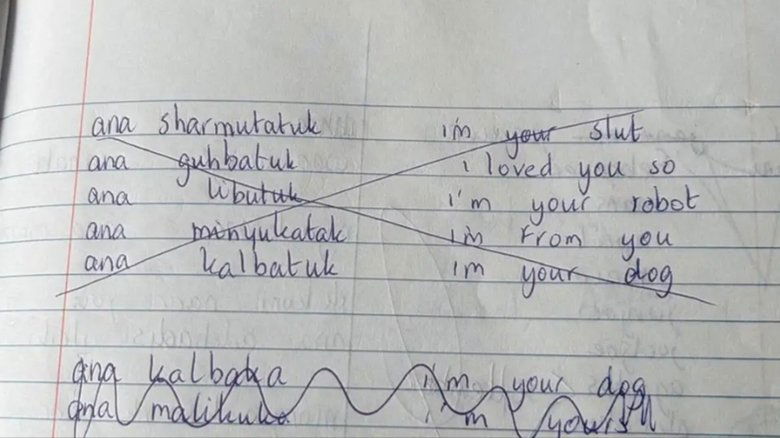 ana sharmutatuk i'm your slut
ana guhbatuk i loved you so
ana libutuk i'm your robot
ana minyukatak i'm from you
ana kalbatuk i'm your dog
ana kalbaka i'm your dog
ana malikuka i'm yours